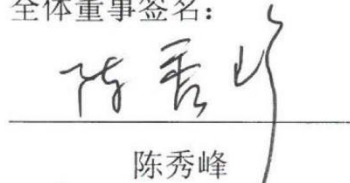 全体董事签名：
陈秀峰
陈秀峰